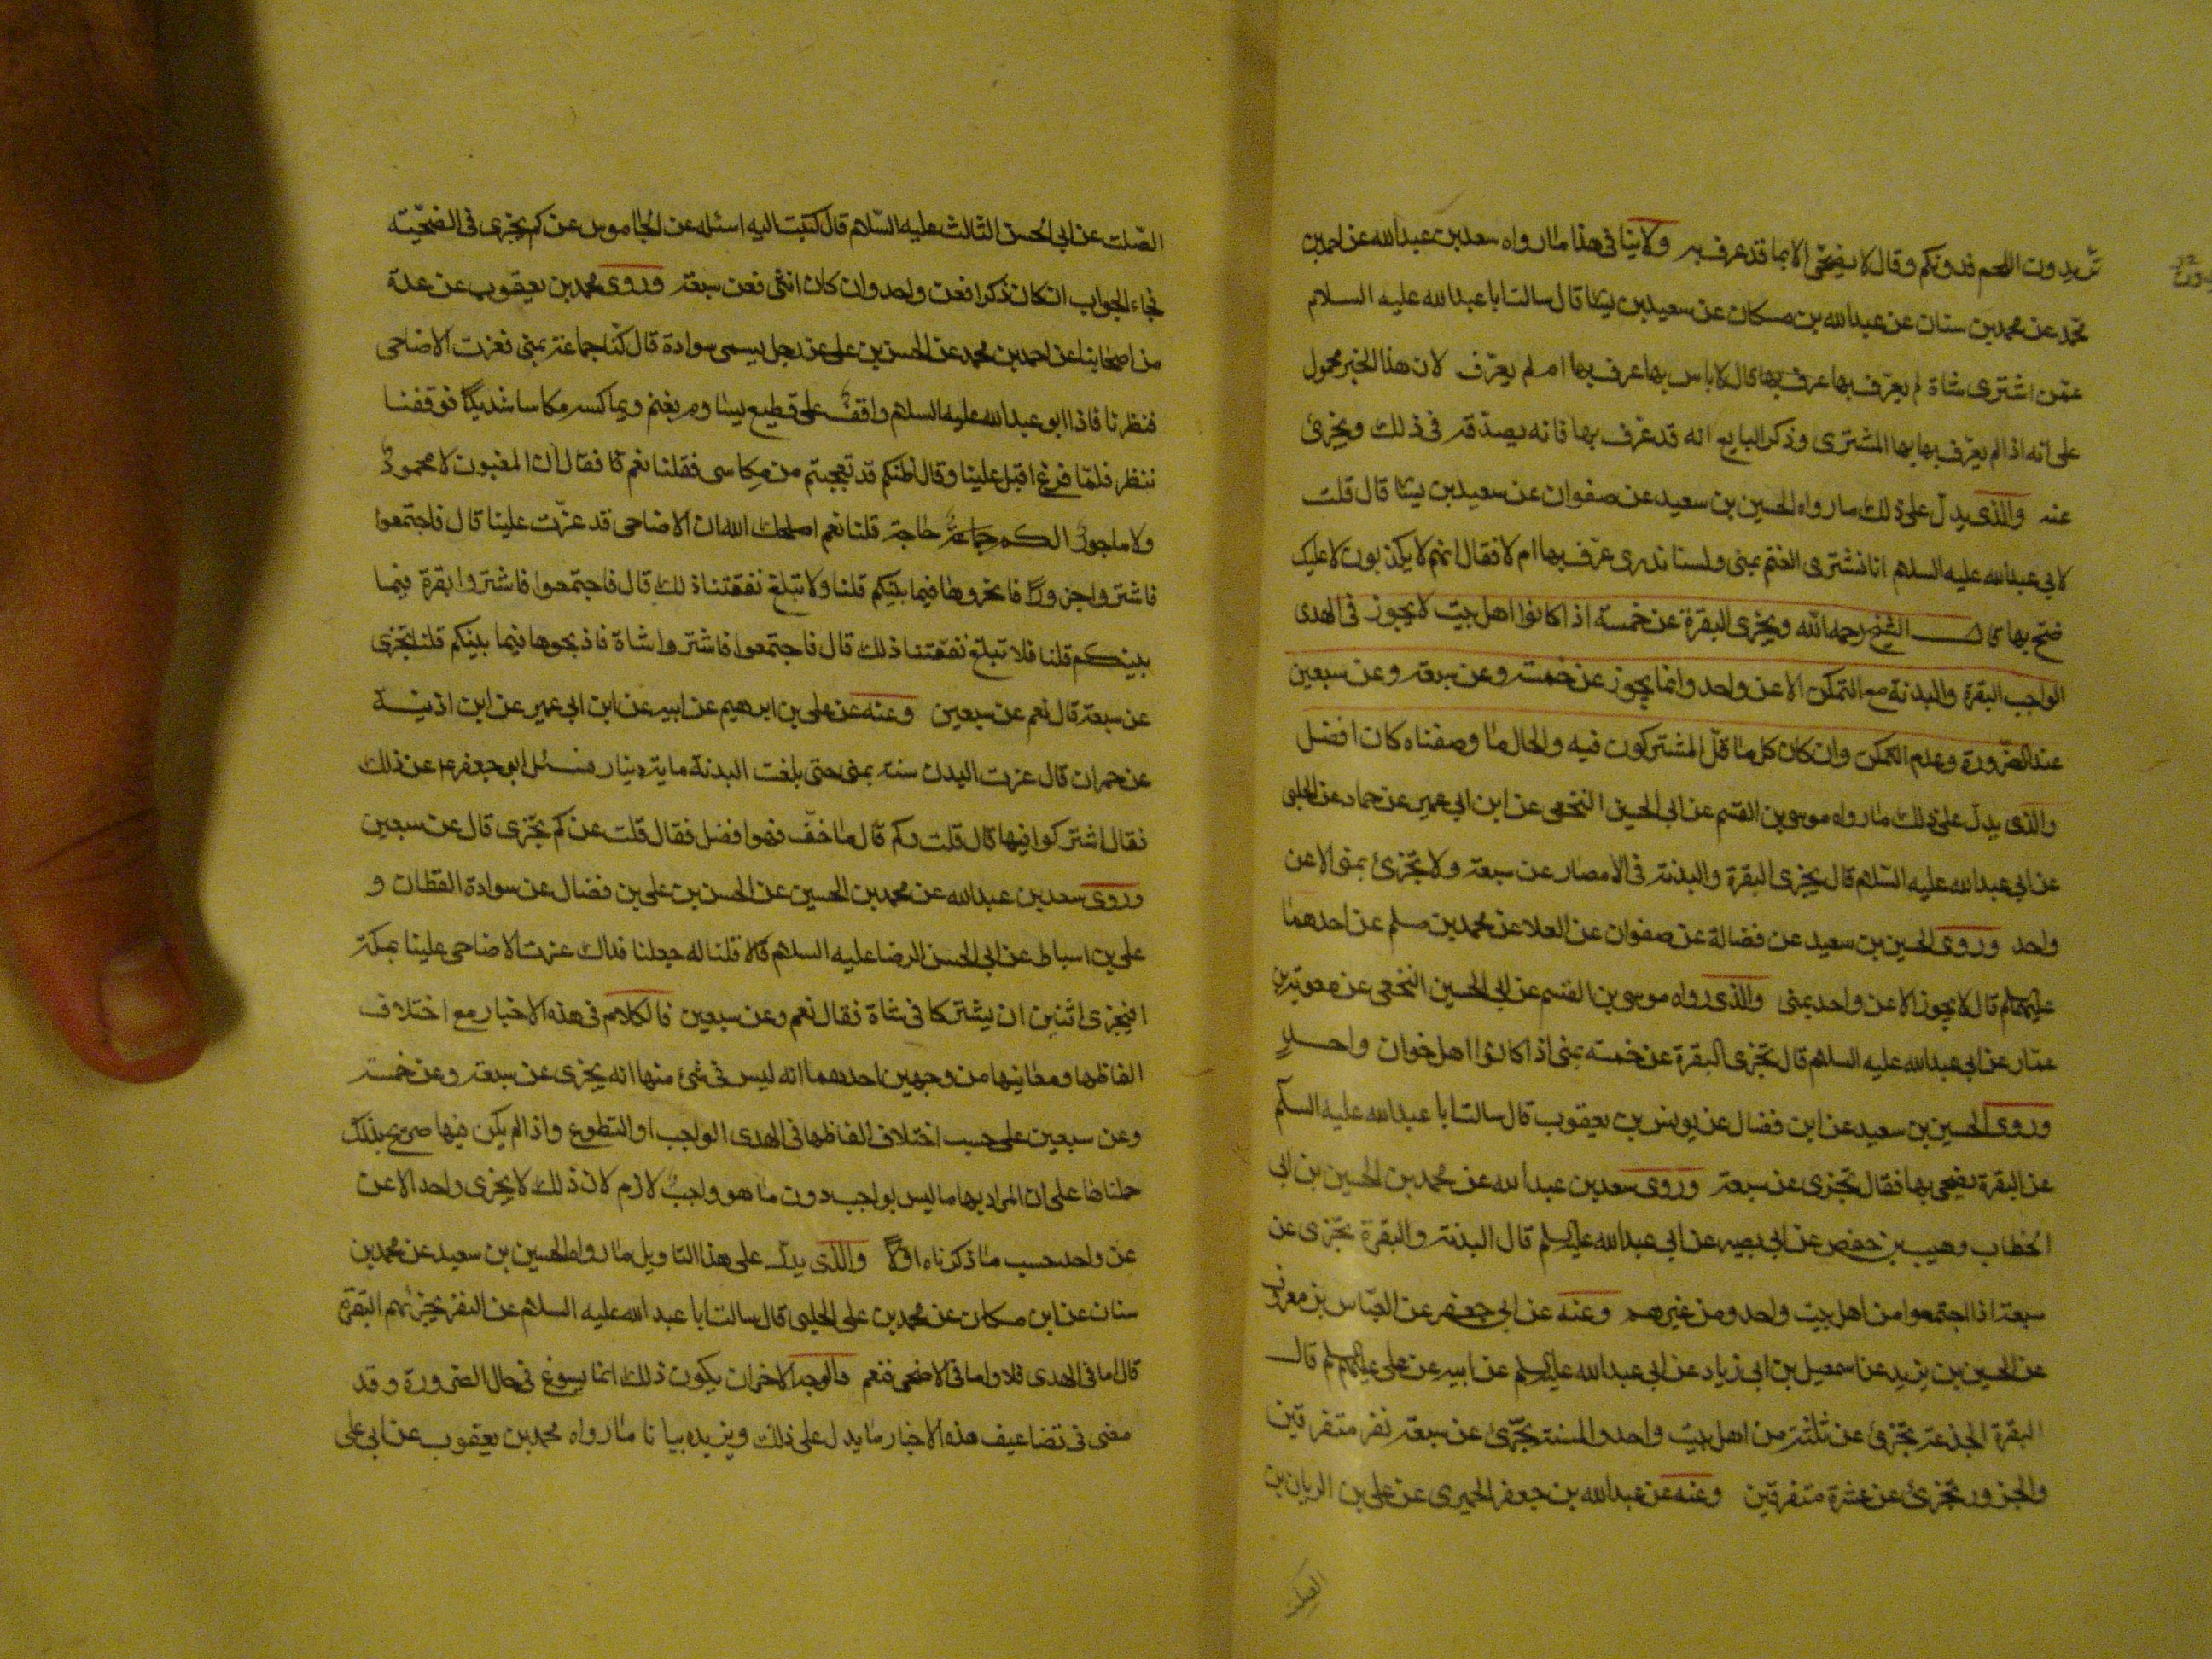 تريدون اللحم فدونكم وقال لا يضحى الا بما قد عرف به ولا ينافى هذا ما رواه سعد بن عبدالله عن احمد بن
محمد عن محمد بن سنان عن عبدالله بن مسكان عن سعيد بن يسار قال سالت ابا عبدالله عليه السلام
عمن اشترى شاة لم يعرف بها عرف بها قال لا باس بها عرف بها ام لم يعرف لان هذا الخبر محمول
على انه اذا لم يعرف بها بها المشترى وذكر البايع انه قد عرف بها فانه يصدقه فى ذلك ويجزئ
عنه والذى يدل على ذلك ما رواه الحسين بن سعيد عن صفوان عن سعيد بن يسار قال قلت
لابى عبدالله عليه السلام انا نشترى الغنم بمنى ولسنا ندرى عرف بها ام لا فقال انهم لا يكذبون لا عليك
ضح بها قال الشيخ رحمه الله ويجزى البقرة عن خمسة اذا كانوا اهل بيت لا يجوز فى الهدى
الواجب البقرة والبدنة مع التمكن الا عن واحد وانما يجوز عن خمسة وعن سبعة وعن سبعين
عند الضرورة وعدم التمكن وان كان كل ما قل المشتركون فيه والحال ما وصفناه كان افضل
والذى يدل على ذلك ما رواه موسى بن القسم عن ابى الحسين النخعى عن ابن ابى عمير عن حماد عن الحلبى
عن ابى عبدالله عليه السلام قال يجزى البقرة والبدنة فى الامصار عن سبعة ولا تجزئ بمنى الا عن
واحد وروى الحسين بن سعيد عن فضالة عن صفوان عن العلا عن محمد بن مسلم عن احدهما
عليهما السلام قال لا يجوز الا عن واحد بمنى والذى رواه موسى بن القسم عن ابى الحسين النخعى عن معوية بن
عمار عن ابى عبدالله عليه السلام قال تجزى البقرة عن خمسة بمنى اذا كانوا اهل خوان واحد
وروى الحسين بن سعيد عن ابن فضال عن يونس بن يعقوب قال سالت ابا عبدالله عليه السلم
عن البقرة يضحى بها فقال تجزى عن سبعة وروى سعد بن عبدالله عن محمد بن الحسين بن ابى
الخطاب وهيب بن حفص عن ابى بصير عن ابى عبدالله عليه السلم قال البدنة والبقرة تجزى عن
سبعة اذا اجتمعوا من اهل بيت واحد ومن غيرهم وعنه عن ابى جعفر عن العباس بن معروف
عن الحسين بن يزيد عن اسمعيل بن ابى زياد عن ابى عبدالله عليه السلم عن ابيه عن على عليهم السلم قال
البقرة الجذعة تجزئ عن ثلثة من اهل بيت واحد والمسنة تجزئ عن سبعة نفر متفرقين
والجزور تجزئ عن عشرة متفرقين وعنه عن عبدالله بن جعفر الحميرى عن على بن الريان بن
الصلت عن ابى الحسن الثالث عليه السلام قال كتبت اليه اسئله عن الجاموس عن كم يجزى فى الضحية
فجاء الجواب ان كان ذكرا فعن واحد وان كان انثى فعن سبعة وروى محمد بن يعقوب عن عدة
من اصحابنا عن احمد بن محمد عن الحسن بن على عن رجل يسمى سوادة قال كنا جماعة بمنى فعزت الاضاحى
فنظرنا فاذا ابو عبدالله عليه السلام واقف على قطيع يساوم بغنم ويماكسهم مكاسا شديدا فوقفنا
ننظر فلما فرغ اقبل علينا وقال اظنكم قد تعجبتم من مكاسى فقلنا نعم فقال ان المغبون لا محمود
ولا ماجور الكم حاجة قلنا نعم اصلحك الله ان الاضاحى قد عزت علينا قال فاجتمعوا
فاشتروا جزورا فانحروها فيما بينكم قلنا ولا تبلغ نفقتنا ذلك قال فاجتمعوا فاشتروا بقرة فيما
بينكم قلنا فلا تبلغ نفقتنا ذلك قال فاجتمعوا فاشتروا شاة فاذبحوها فيما بينكم قلنا تجزى
عن سبعة قال نعم عن سبعين وعنه عن على بن ابرهيم عن ابيه عن ابن ابى عمير عن ابن اذينة
عن حمران قال عزت البدن سنة بمنى حتى بلغت البدنة ماية دينار فسئل ابو جعفر ع عن ذلك
فقال اشتركوا فيها قال قلت كم قال ما خف فهو افضل فقال قلت عن كم تجزى قال عن سبعين
وروى سعد بن عبدالله عن محمد بن الحسين عن الحسن بن على بن فضال عن سوادة القطان و
على بن اسباط عن ابى الحسن الرضا عليه السلام قالا قلنا له جعلنا فداك عزت الاضاحى علينا بمكة
افيجزى اثنين ان يشتركا فى شاة فقال نعم وعن سبعين فالكلام فى هذه الاخبار مع اختلاف
الفاظها ومعانيها من وجهين احدهما انه ليس فى شئ منها انه يجزى عن سبعة وعن خمسة
وعن سبعين على حسب اختلاف الفاظها فى الهدى الواجب او التطوع واذا لم يكن فيها صريح بذلك
حملناها على ان المراد بها ما ليس بواجب دون ما هو واجب لازم لان ذلك لا يجزى واحد الا عن
عن واحد حسب ما ذكرناه اولا والذى يدل على هذا التاويل ما رواه الحسين بن سعيد عن محمد بن
سنان عن ابن مسكان عن محمد بن على الحلبى قال سالت ابا عبدالله عليه السلام عن النفر تجزئهم البقرة
قال اما فى الهدى فلا واما فى الاضحى فنعم والوجه الاخر ان يكون ذلك انما يسوغ فى حال الضرورة وقد
مضى فى تضاعيف هذه الاخبار ما يدل على ذلك ويزيده بيانا ما رواه محمد بن يعقوب عن ابى على
الصلت